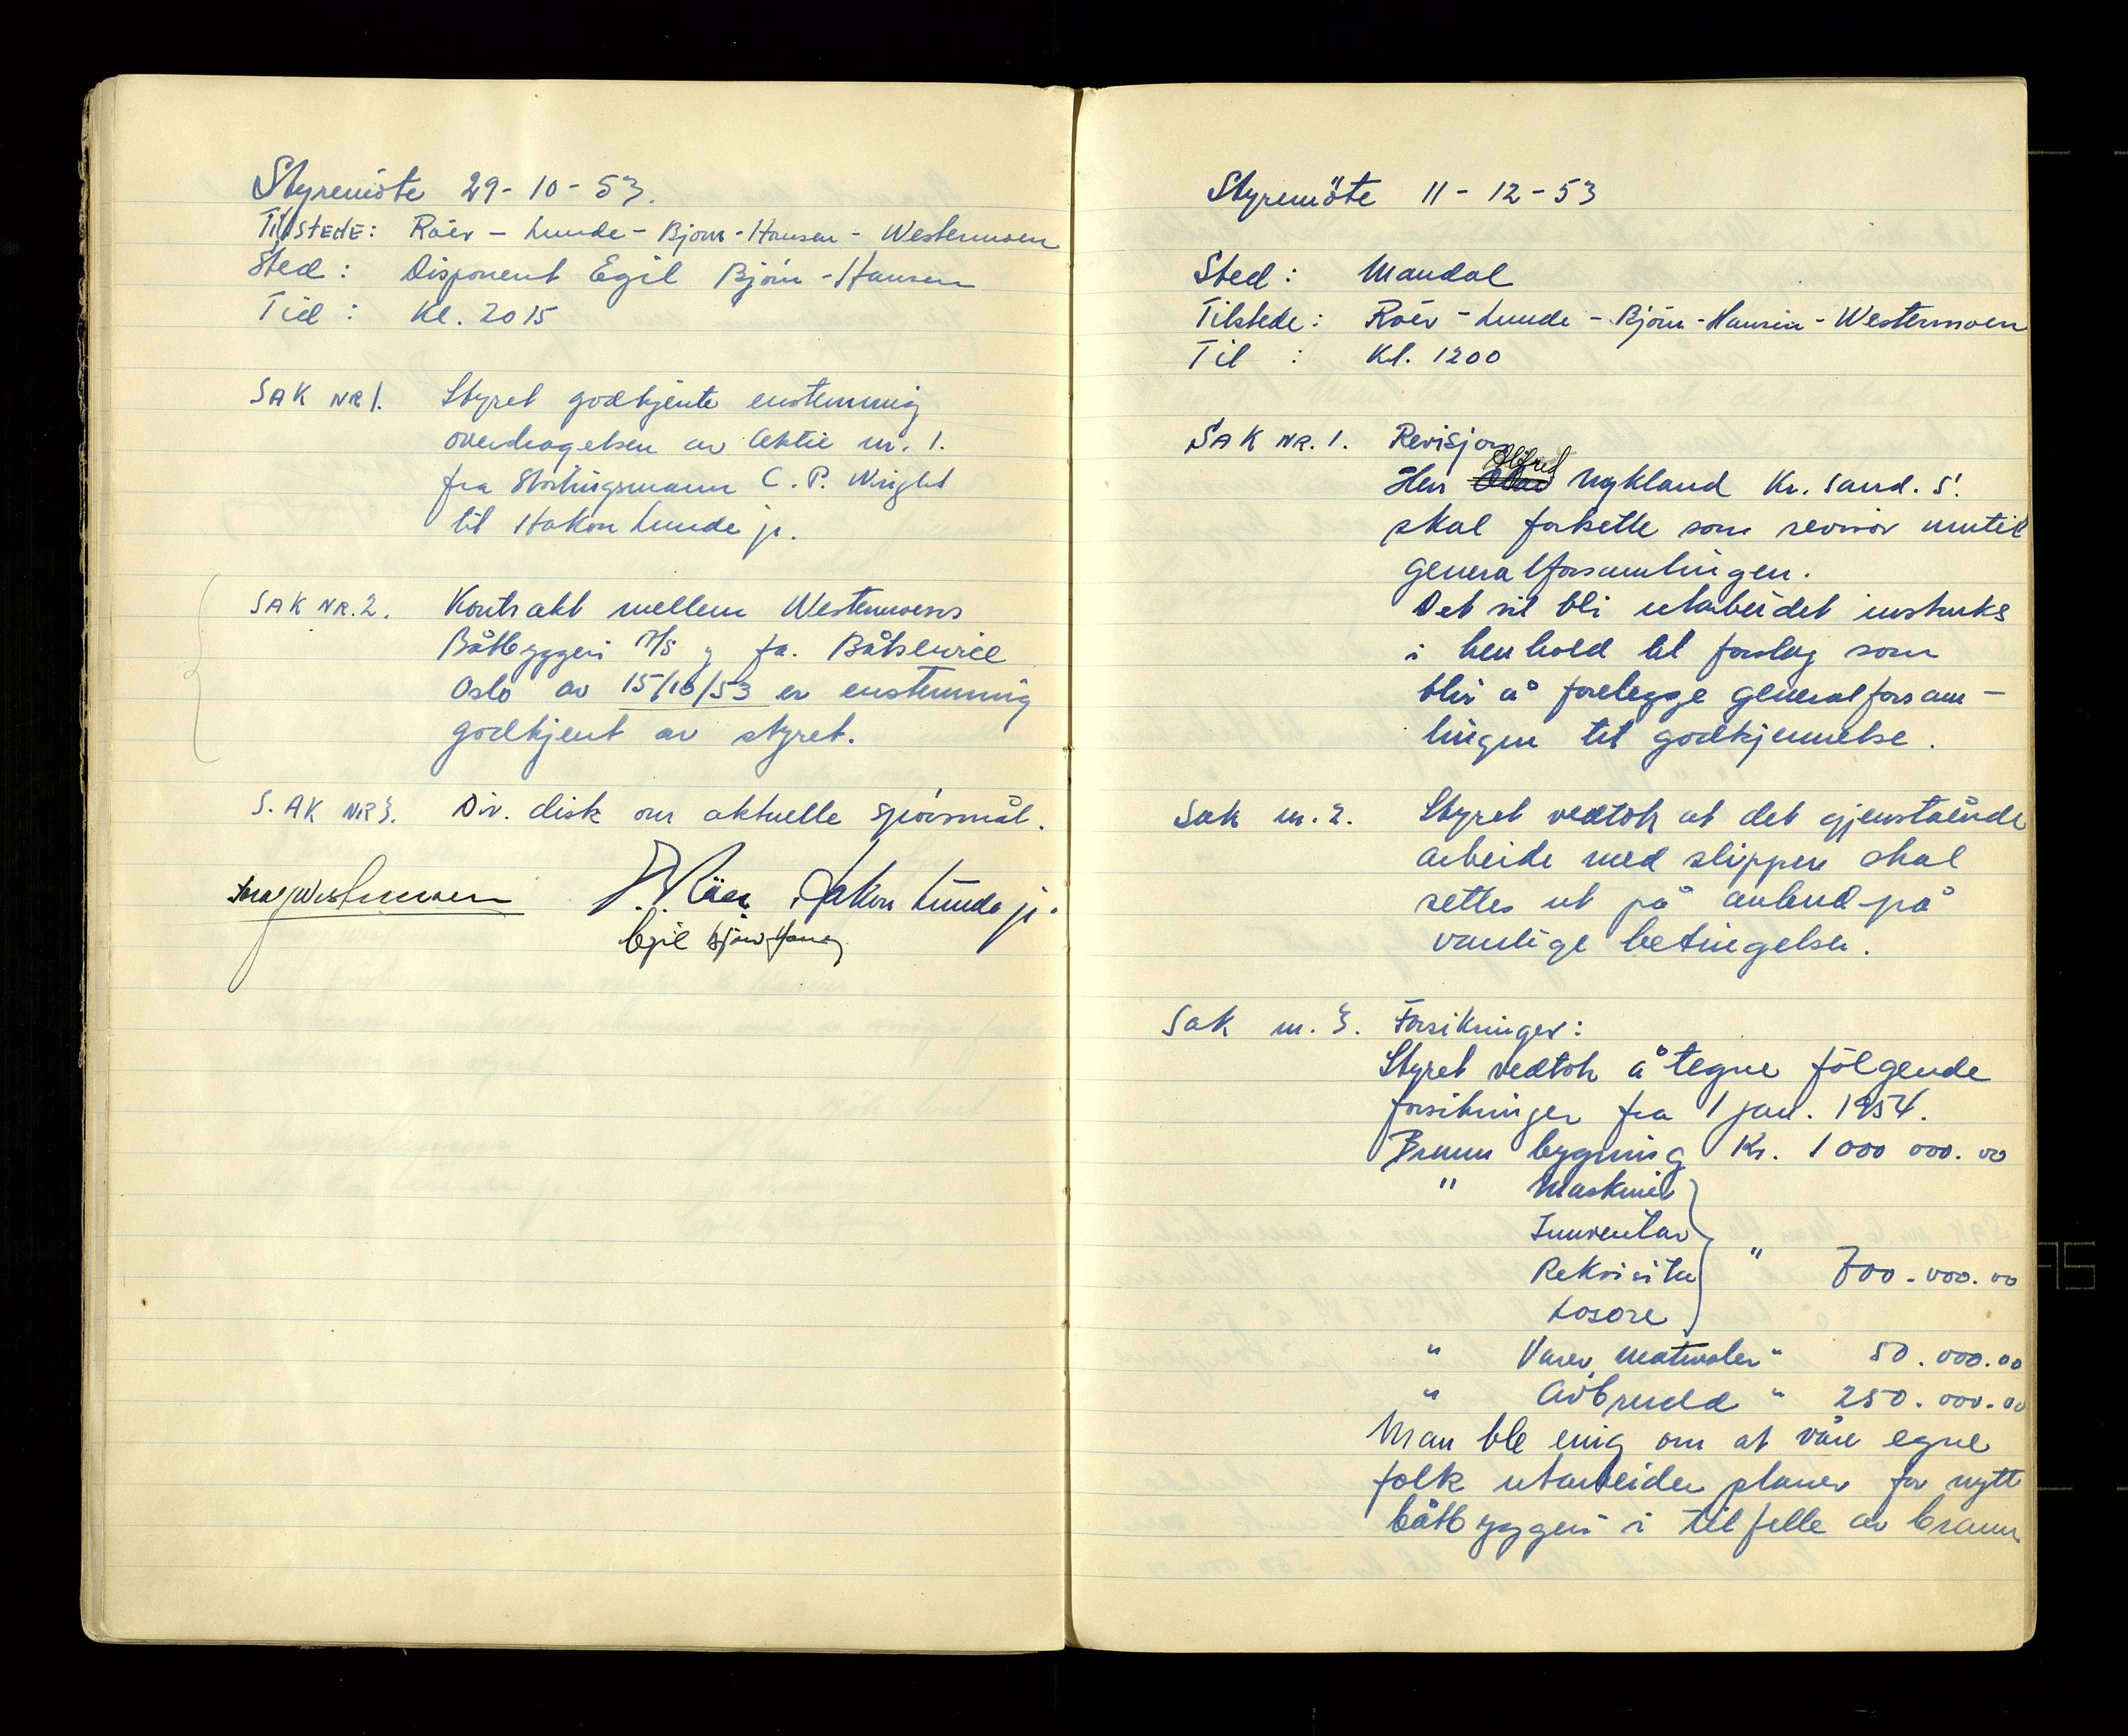 Styremöte 29-10-53.
TILSTEDE: Röer - Lunde - Bjørn-Hansen - Westermoen
Sted : Disponent Egil Bjørn-Hansen
Tid : Kl. 2015
SAK NR 1. Styret godkjente enstemmig
overdragelsen av Aktie nr. 1.
fra Stortingsmann C. P. Wright
til Hakon Lunde jr.
SAK NR. 2. Kontrakt mellem Westermoens
Båtbyggeri A/S og fa. Båtservice
Oslo av 15/10/53 er enstemmig
godkjent av styret.
S. AK NR 3. Div. disk om aktuelle spörsmål.
Westermoen Röer Hakon Lunde jr.
Egil Bjørn-Hansen
Styremöte 11-12-53
Sted : Mandal
Tilstede : Röer - Lunde - Björn-Hansen - Westermoen
Til : Kl. 1200
SAK NR. 1. Revisjon
Alfred
Herr Nykland Kr. sand. S.
skal fortsette som revisor inntil
generalforsamlingen.
Det vil bli utarbeidet instruks
i henhold til forslag som
blir å forelegge generalforsam-
lingen til godkjennelse.
Sak nr. 2. Styret vedtok at det gjenstående
arbeide med slippen skal
settes ut på anbud på
vanlige betingelser.
Sak nr. 3. Forsikringer:
Styret vedtok å tegne fölgende
forsikringer fra 1 jan. 1954.
Brann bygning Kr. 1 000 000.00
" Maskiner
Innventar
Rekvisita " 700.000.00
Losöre
" Varer materialer " 50.000.00
" Avbrudd " 250.000.00
Man ble enig om at våre egne
folk utarbeider planer for nytt
båtbyggeri i tilfelle av brann